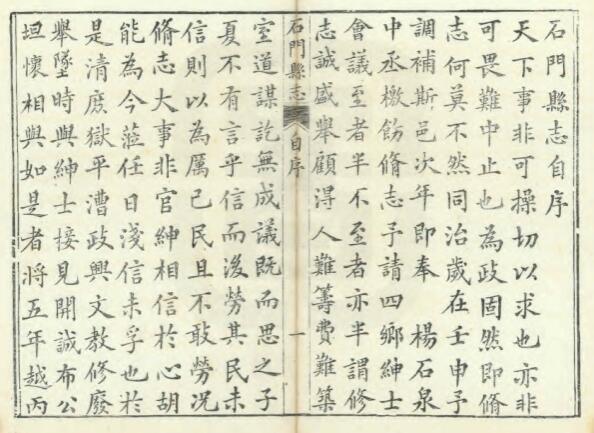 石門縣志自序
天下事非可操切以求也亦非
可畏難中止也為政固然即脩
志何莫不然同治歲在壬申予
調補斯邑次年即奉　楊石泉
中丞檄飭脩志予請四鄉紳士
會議至者半不至者亦半謂修
志誠盛舉顧得人難籌費難築
石門縣志
自序
一
室道謀訖無成議既而思之子
夏不有言乎信而後勞其民未
信則以為厲己民且不敢勞況
脩志大事非官紳相信於心胡
能為今蒞任日淺信未孚也於
是清庶獄平漕政興文教修廢
舉墜時與紳士接見開誠布公
坦懷相與如是者將五年越丙